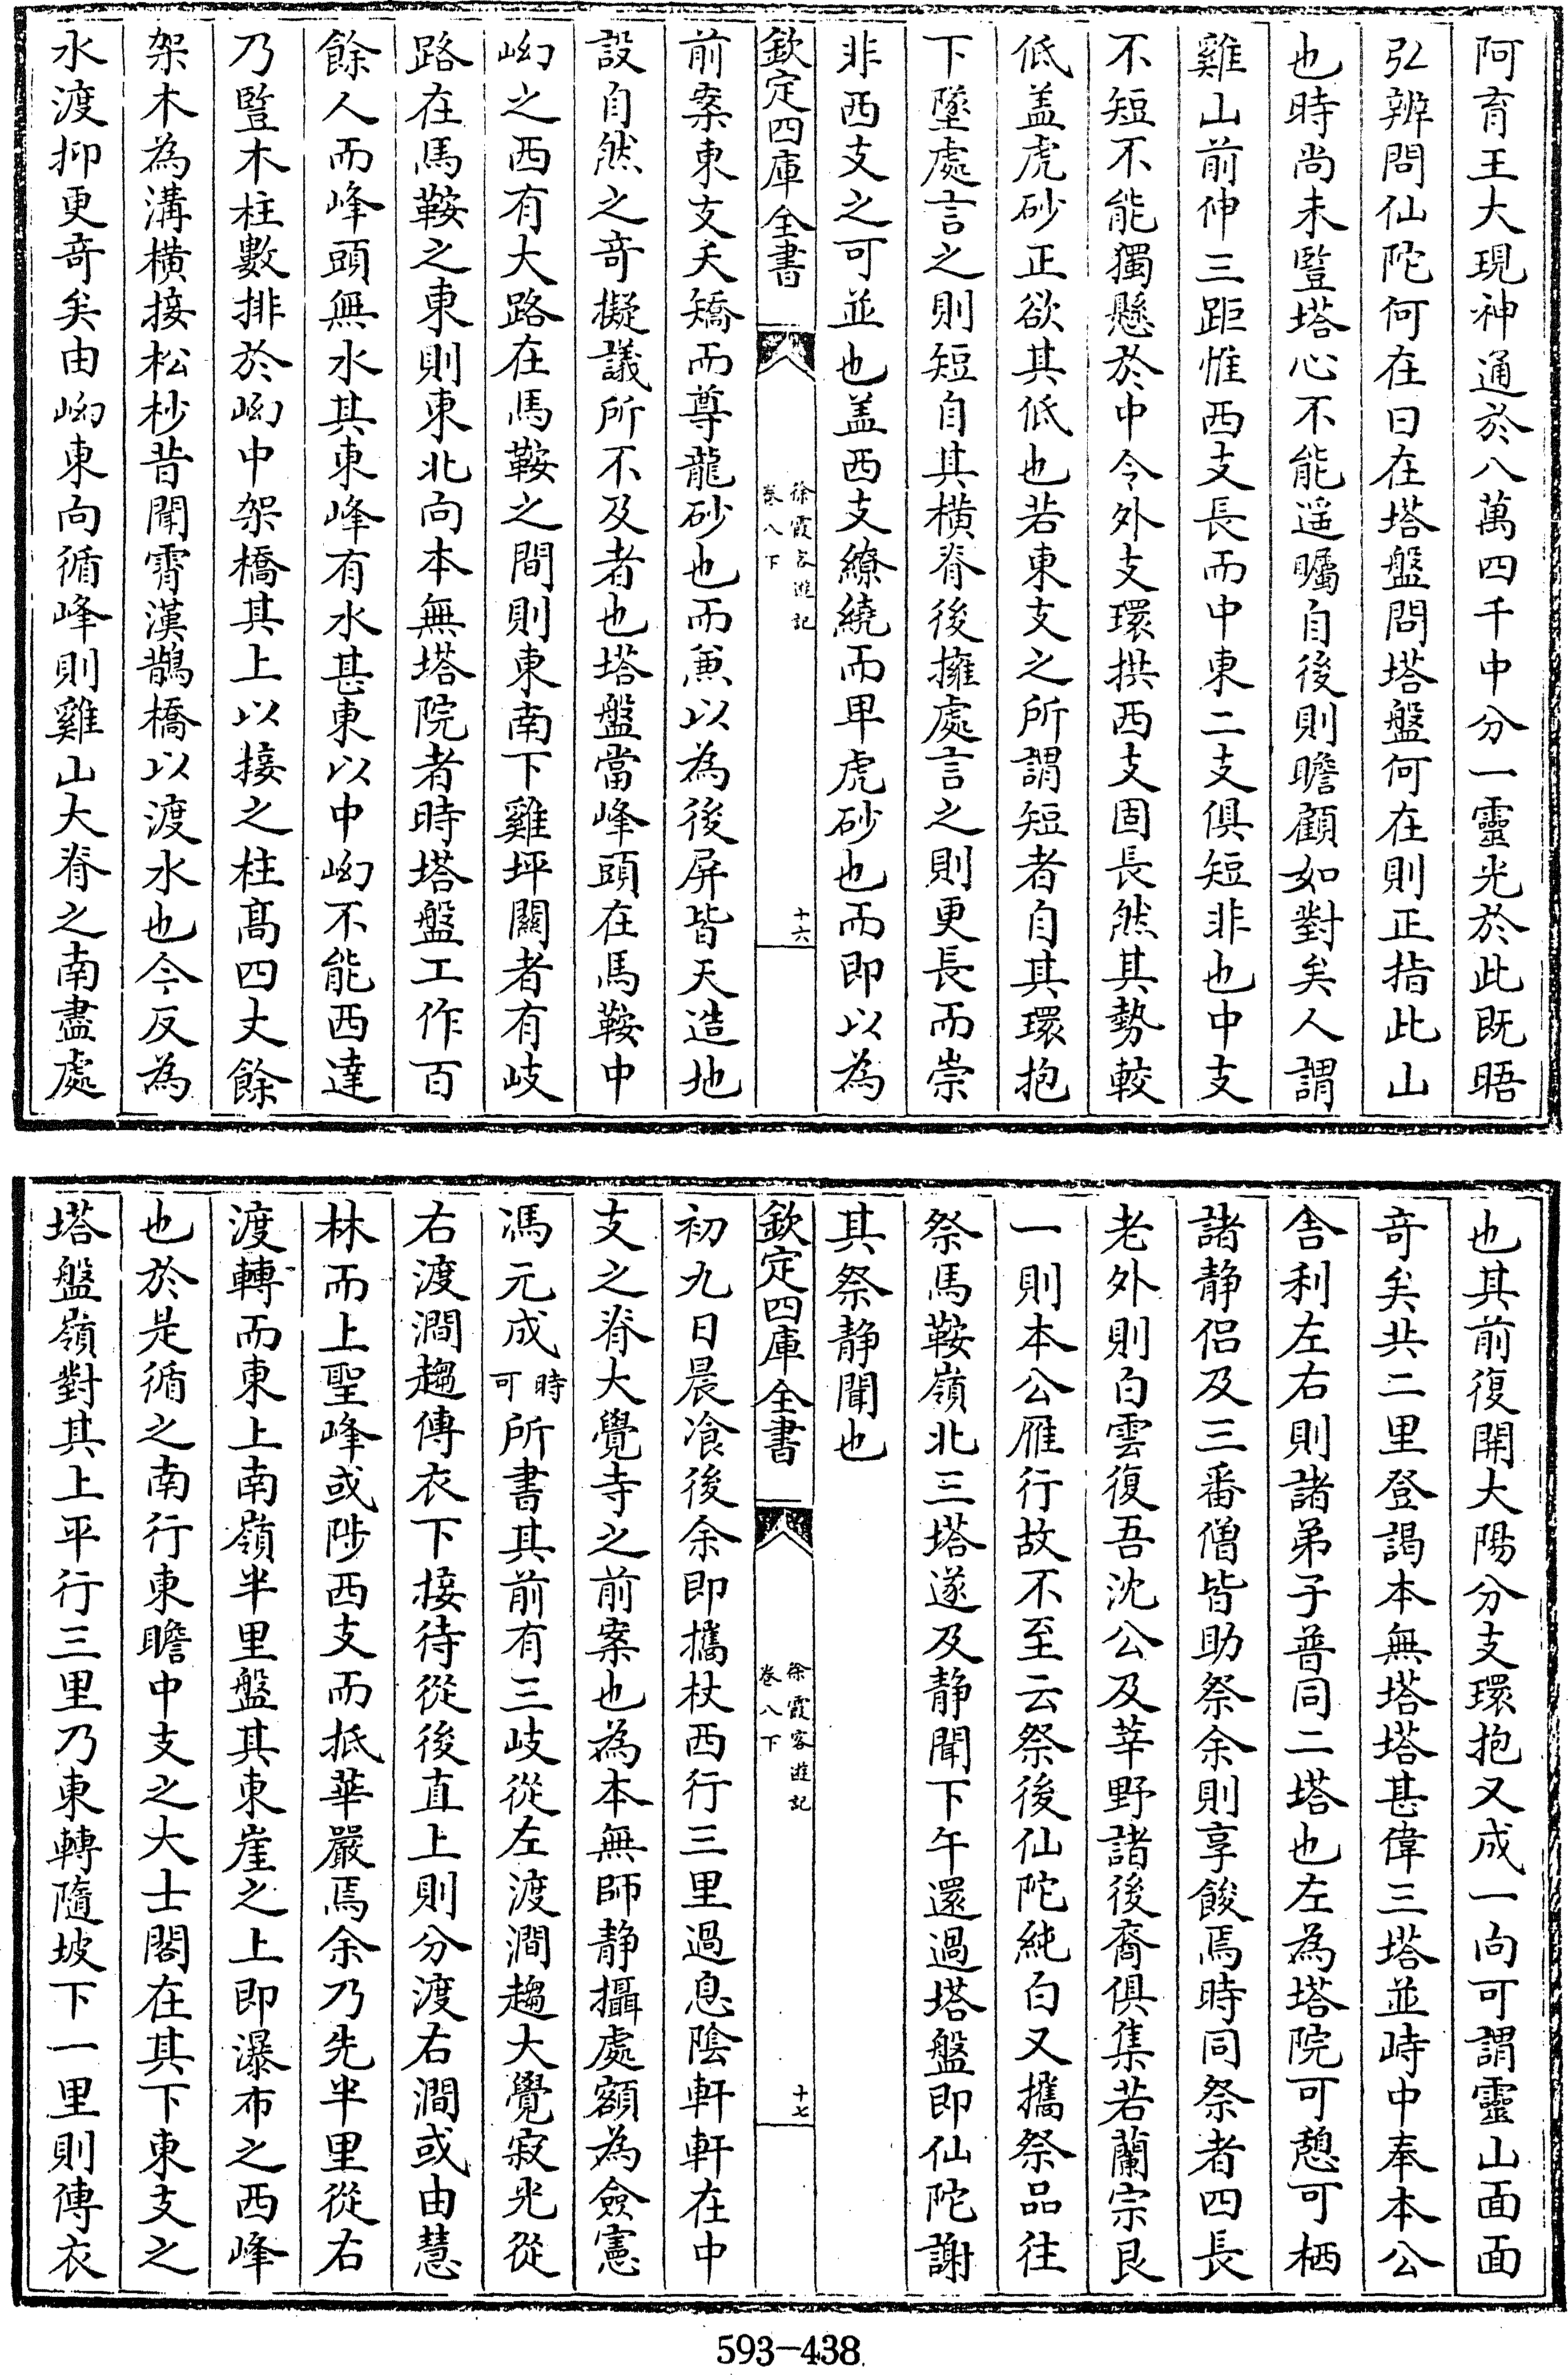 阿育王大現神通於八萬四千中分一靈光於此既晤
弘辨問仙陀何在曰在塔盤問塔盤何在則正指此山
也時尚未豎塔心不能遥矚自後則瞻顧如對矣人謂
雞山前伸三距惟西支長而中東二支俱短非也中支
不短不能獨懸於中令外支環拱西支固長然其勢較
低盖虎砂正欲其低也若東支之所謂短者自其環抱
下墜處言之則短自其橫脊後擁處言之則更長而崇
非西支之可並也盖西支繚繞而卑虎砂也而即以為
欽定四庫全書
徐霞客遊記
卷八下
十六
前案東支夭矯而尊龍砂也而兼以為後屏皆天造地
設自然之竒擬議所不及者也塔盤當峰頭在馬鞍中
㘭之西有大路在馬鞍之間則東南下雞坪關者有岐
路在馬鞍之東則東北向本無塔院者時塔盤工作百
餘人而峰頭無水其東峰有水甚東以中㘭不能西達
乃豎木柱數排於㘭中架橋其上以接之柱髙四丈餘
架木為溝橫接松杪昔聞霄漢鵲橋以渡水也今反為
水渡抑更竒矣由㘭東向循峰則雞山大脊之南盡處
也其前復開大陽分支環抱又成一向可謂靈山面面
竒矣共二里登謁本無塔塔甚偉三塔並峙中奉本公
舍利左右則諸弟子普同二塔也左為塔院可憩可栖
諸静侣及三番僧皆助祭余則享餕焉時同祭者四長
老外則白雲復吾沈公及莘野諸後裔俱集若蘭宗艮
一則本公雁行故不至云祭後仙陀純白又攜祭品往
祭馬鞍嶺北三塔遂及静聞下午還過塔盤即仙陀謝
其祭静聞也
欽定四庫全書
徐霞客遊記
卷八下
十七
初九日晨飡後余即攜杖西行三里過息陰軒軒在中
支之脊大覺寺之前案也為本無師静攝處額為僉憲
馮元成時可所書其前有三岐從左渡澗趨大覺寂光從
右渡澗趨傳衣下接待從後直上則分渡右澗或由慧
林而上聖峰或陟西支而抵華嚴焉余乃先半里從右
渡轉而東上南嶺半里盤其東崖之上即瀑布之西峰
也於是循之南行東瞻中支之大士閣在其下東支之
塔盤嶺對其上平行三里乃東轉隨坡下一里則傳衣
593-438